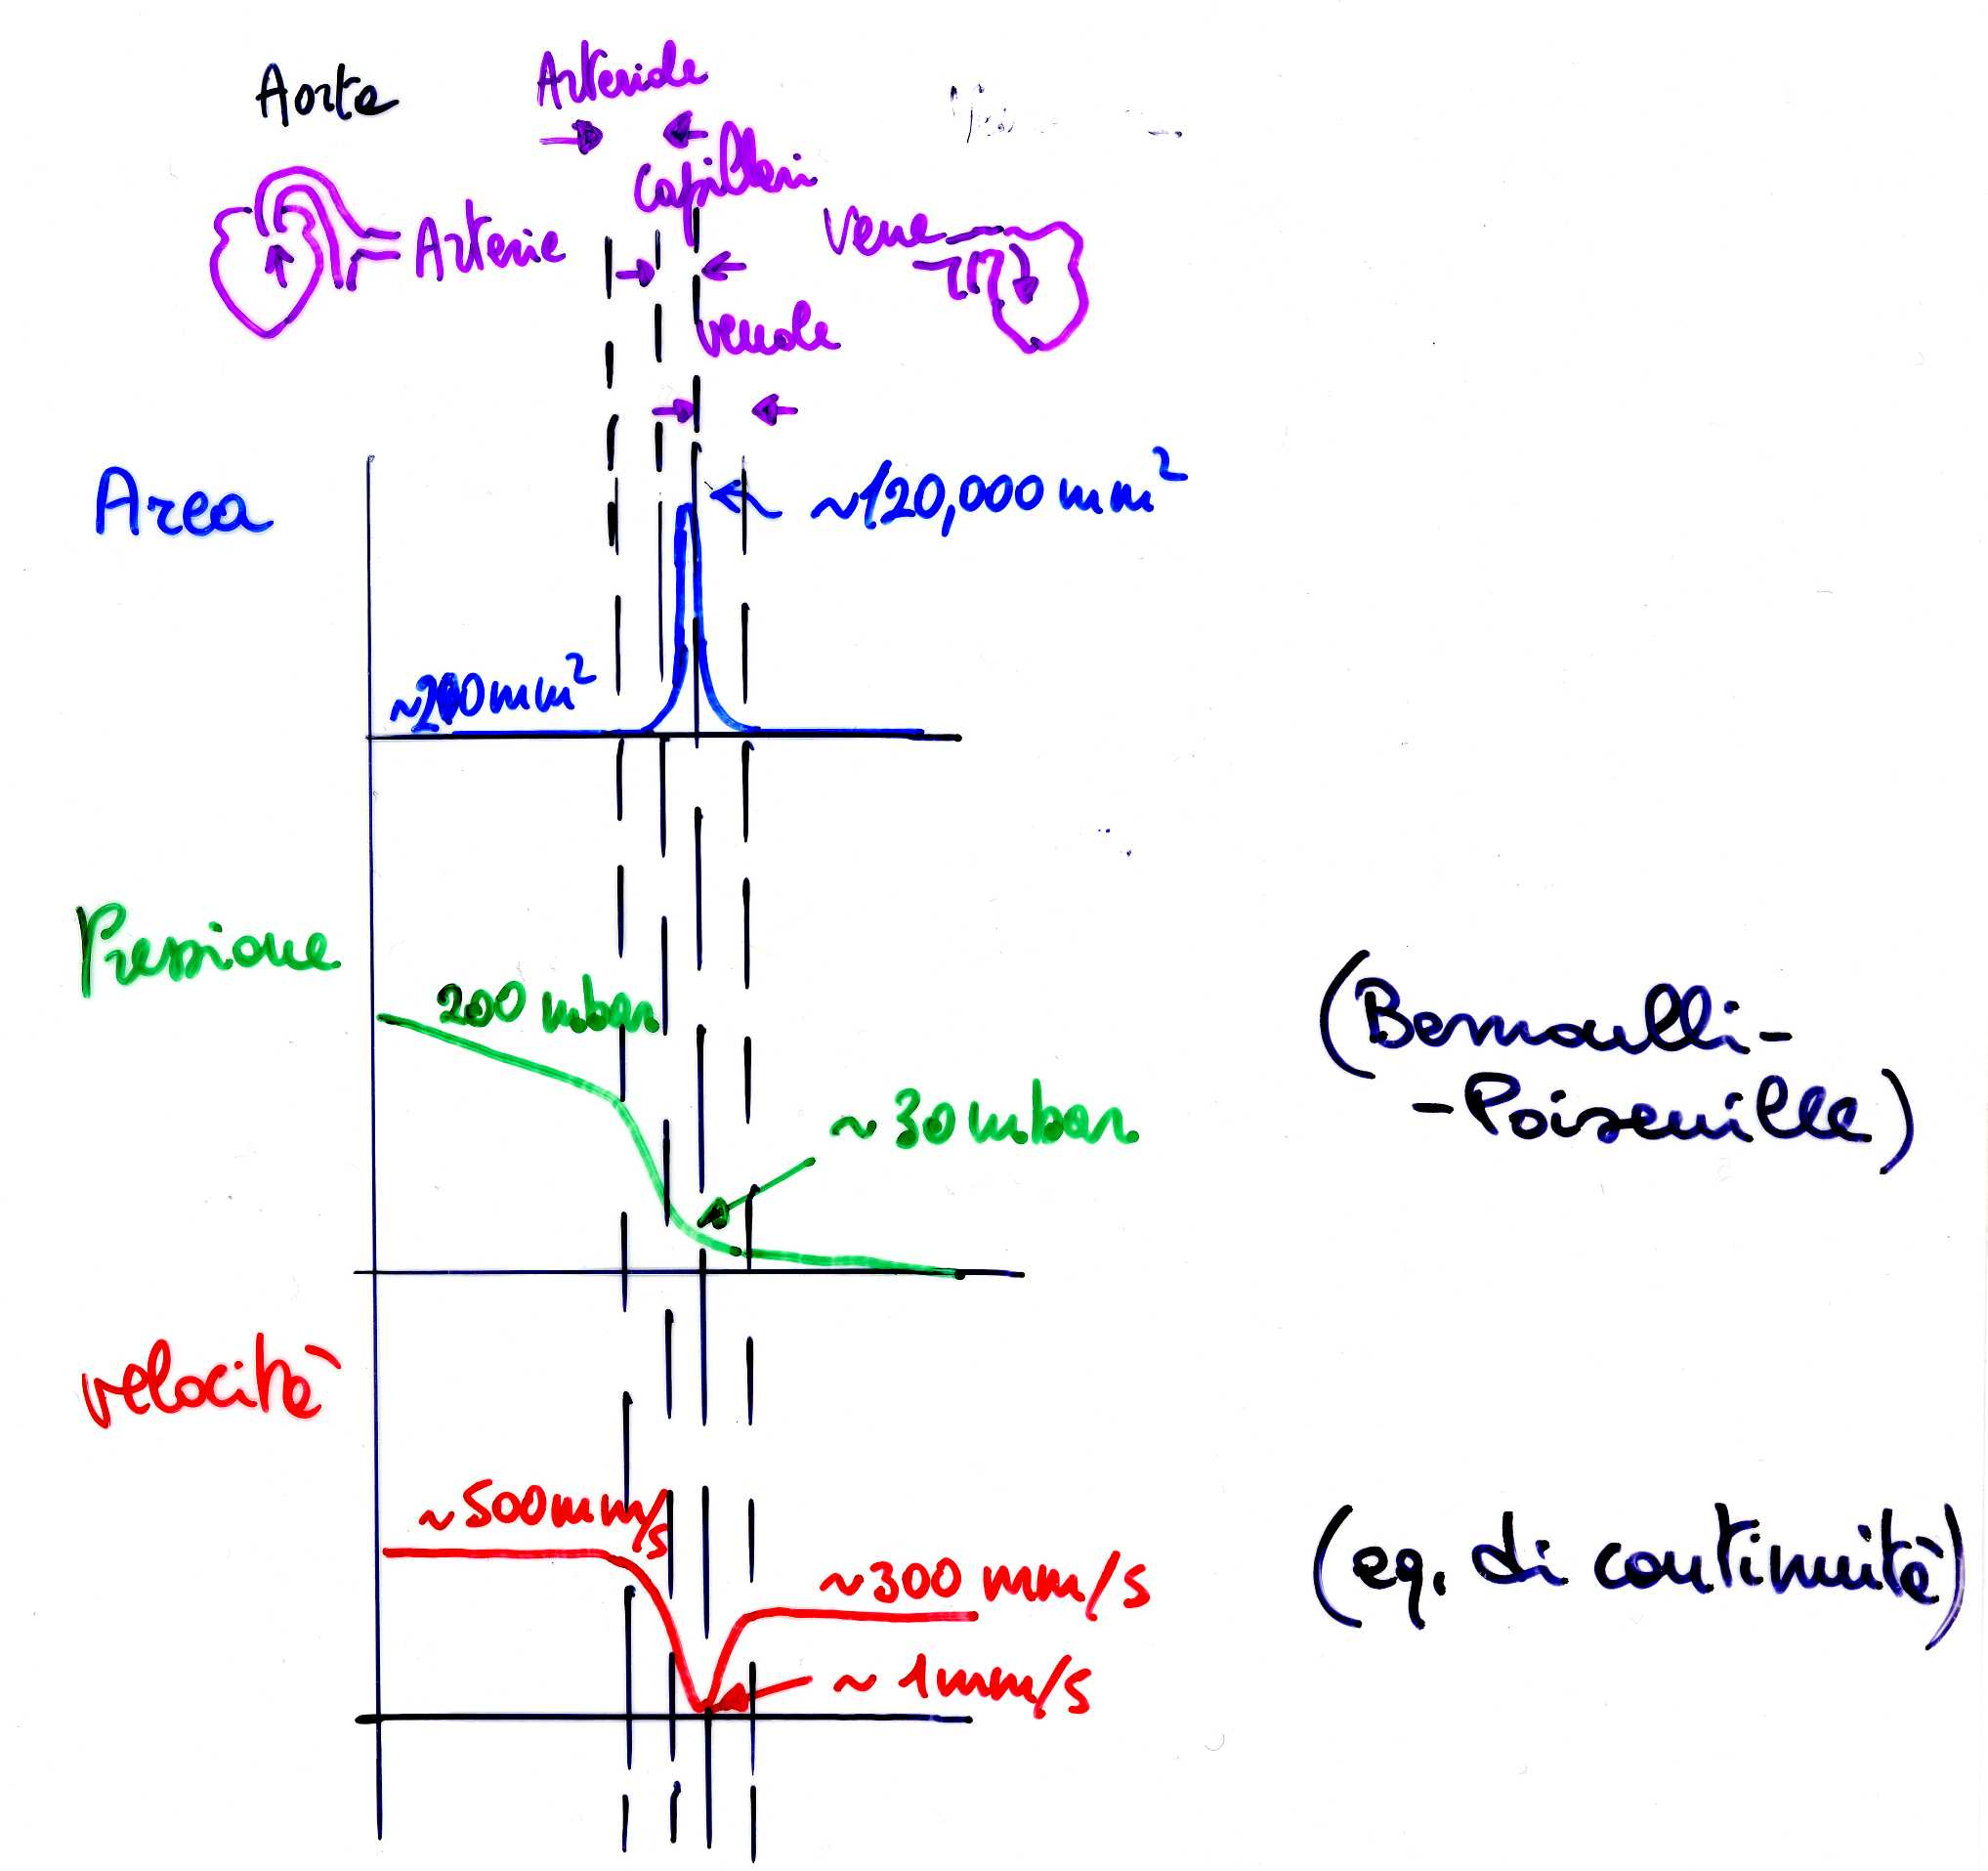 Aorta
Arteriole
Capillari
Arterie
Vene
Venole
Area
~120,000 mm²
~200 mm²
Pressione
200 mbar
(Bernoulli-
-Poiseuille)
~30 mbar
velocità
~500 mm/s
~300 mm/s
(eq. di continuità)
~1 mm/s